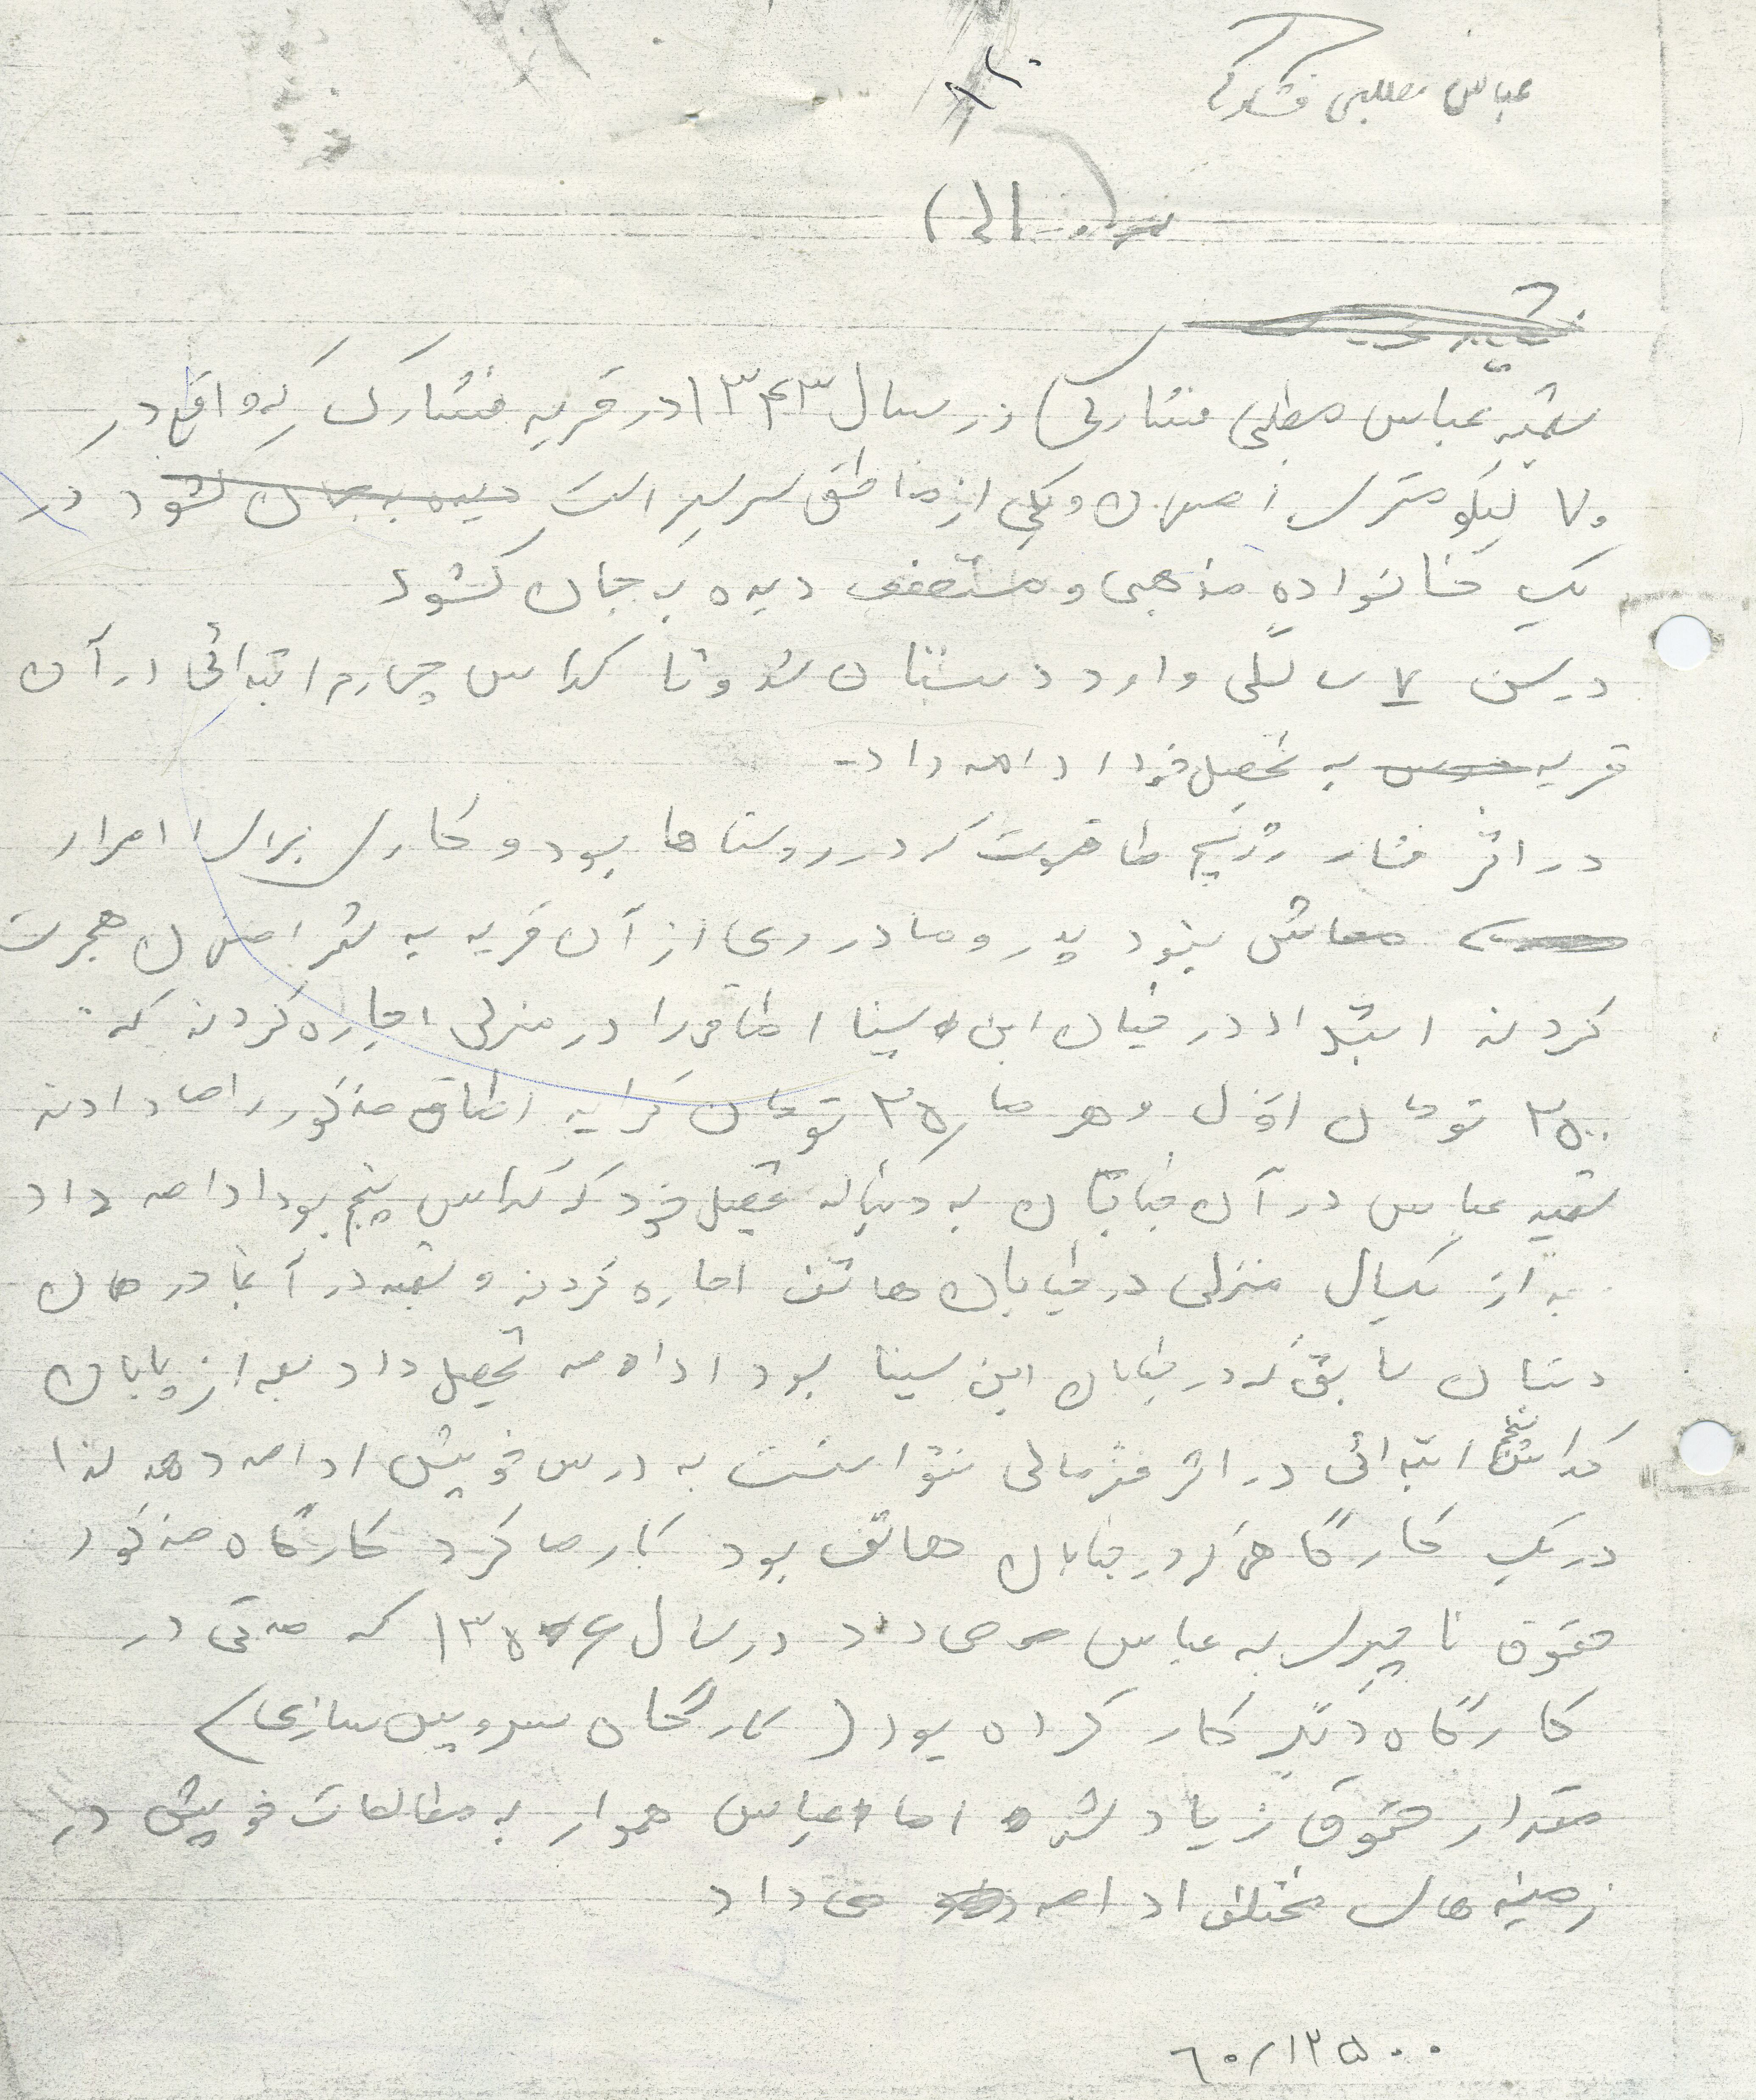 عباس مطلبی فشارکی
شهید عباس مطلبی فشارکی در سال ۱۳۴۳ در قریه فشارک که واقع در
کیلومتری اصفهان و یکی از مناطق سرسبز است دیده به جهان گشود در
یک خانواده مذهبی و مستضعف دیده به جهان گشود
در سن ۷ سالگی وارد دبستان شد و تا کلاس چهارم ابتدائی در آن
قریه به تحصیل خود ادامه داد
در اثر فشار رژیم طاغوت که در روستاها بود و کاری برای امرار
معاش نبود پدر و مادر وی از آن قریه به شهر اصفهان هجرت
کردند ابتدا در خیابان ابن سینا اطاقی را در منزلی اجاره کردند که
۲۵۰۰ تومان اول و هر ماه ۲۵ تومان کرایه اطاق مذکور را می دادند
شهید عباس در آن خیابان به دنباله تحصیل خود که کلاس پنجم بود ادامه داد
بعد از یکسال منزلی در خیابان هاتف اجاره کردند و شهید در آنجا در همان
دبستان سابق که در خیابان ابن سینا بود ادامه تحصیل داد بعد از پایان
کلاس پنجم ابتدائی در اثر فقر مالی نتوانست به درس خویش ادامه دهد لذا
در یک کارگاهی که در خیابان هاتف بود کار می کرد کارگاه مذکور
حقوق ناچیزی به عباس می داد در سال ۱۳۵۶ که مدتی در
کارگاه دیگر کار کرده بود (کارگاه سرویس سازی)
مقدار حقوق زیاد شد اما عباس هموار به مطالعات خویش در
زمینه های مختلف ادامه می داد
۶۰/۱۲۵۰۰